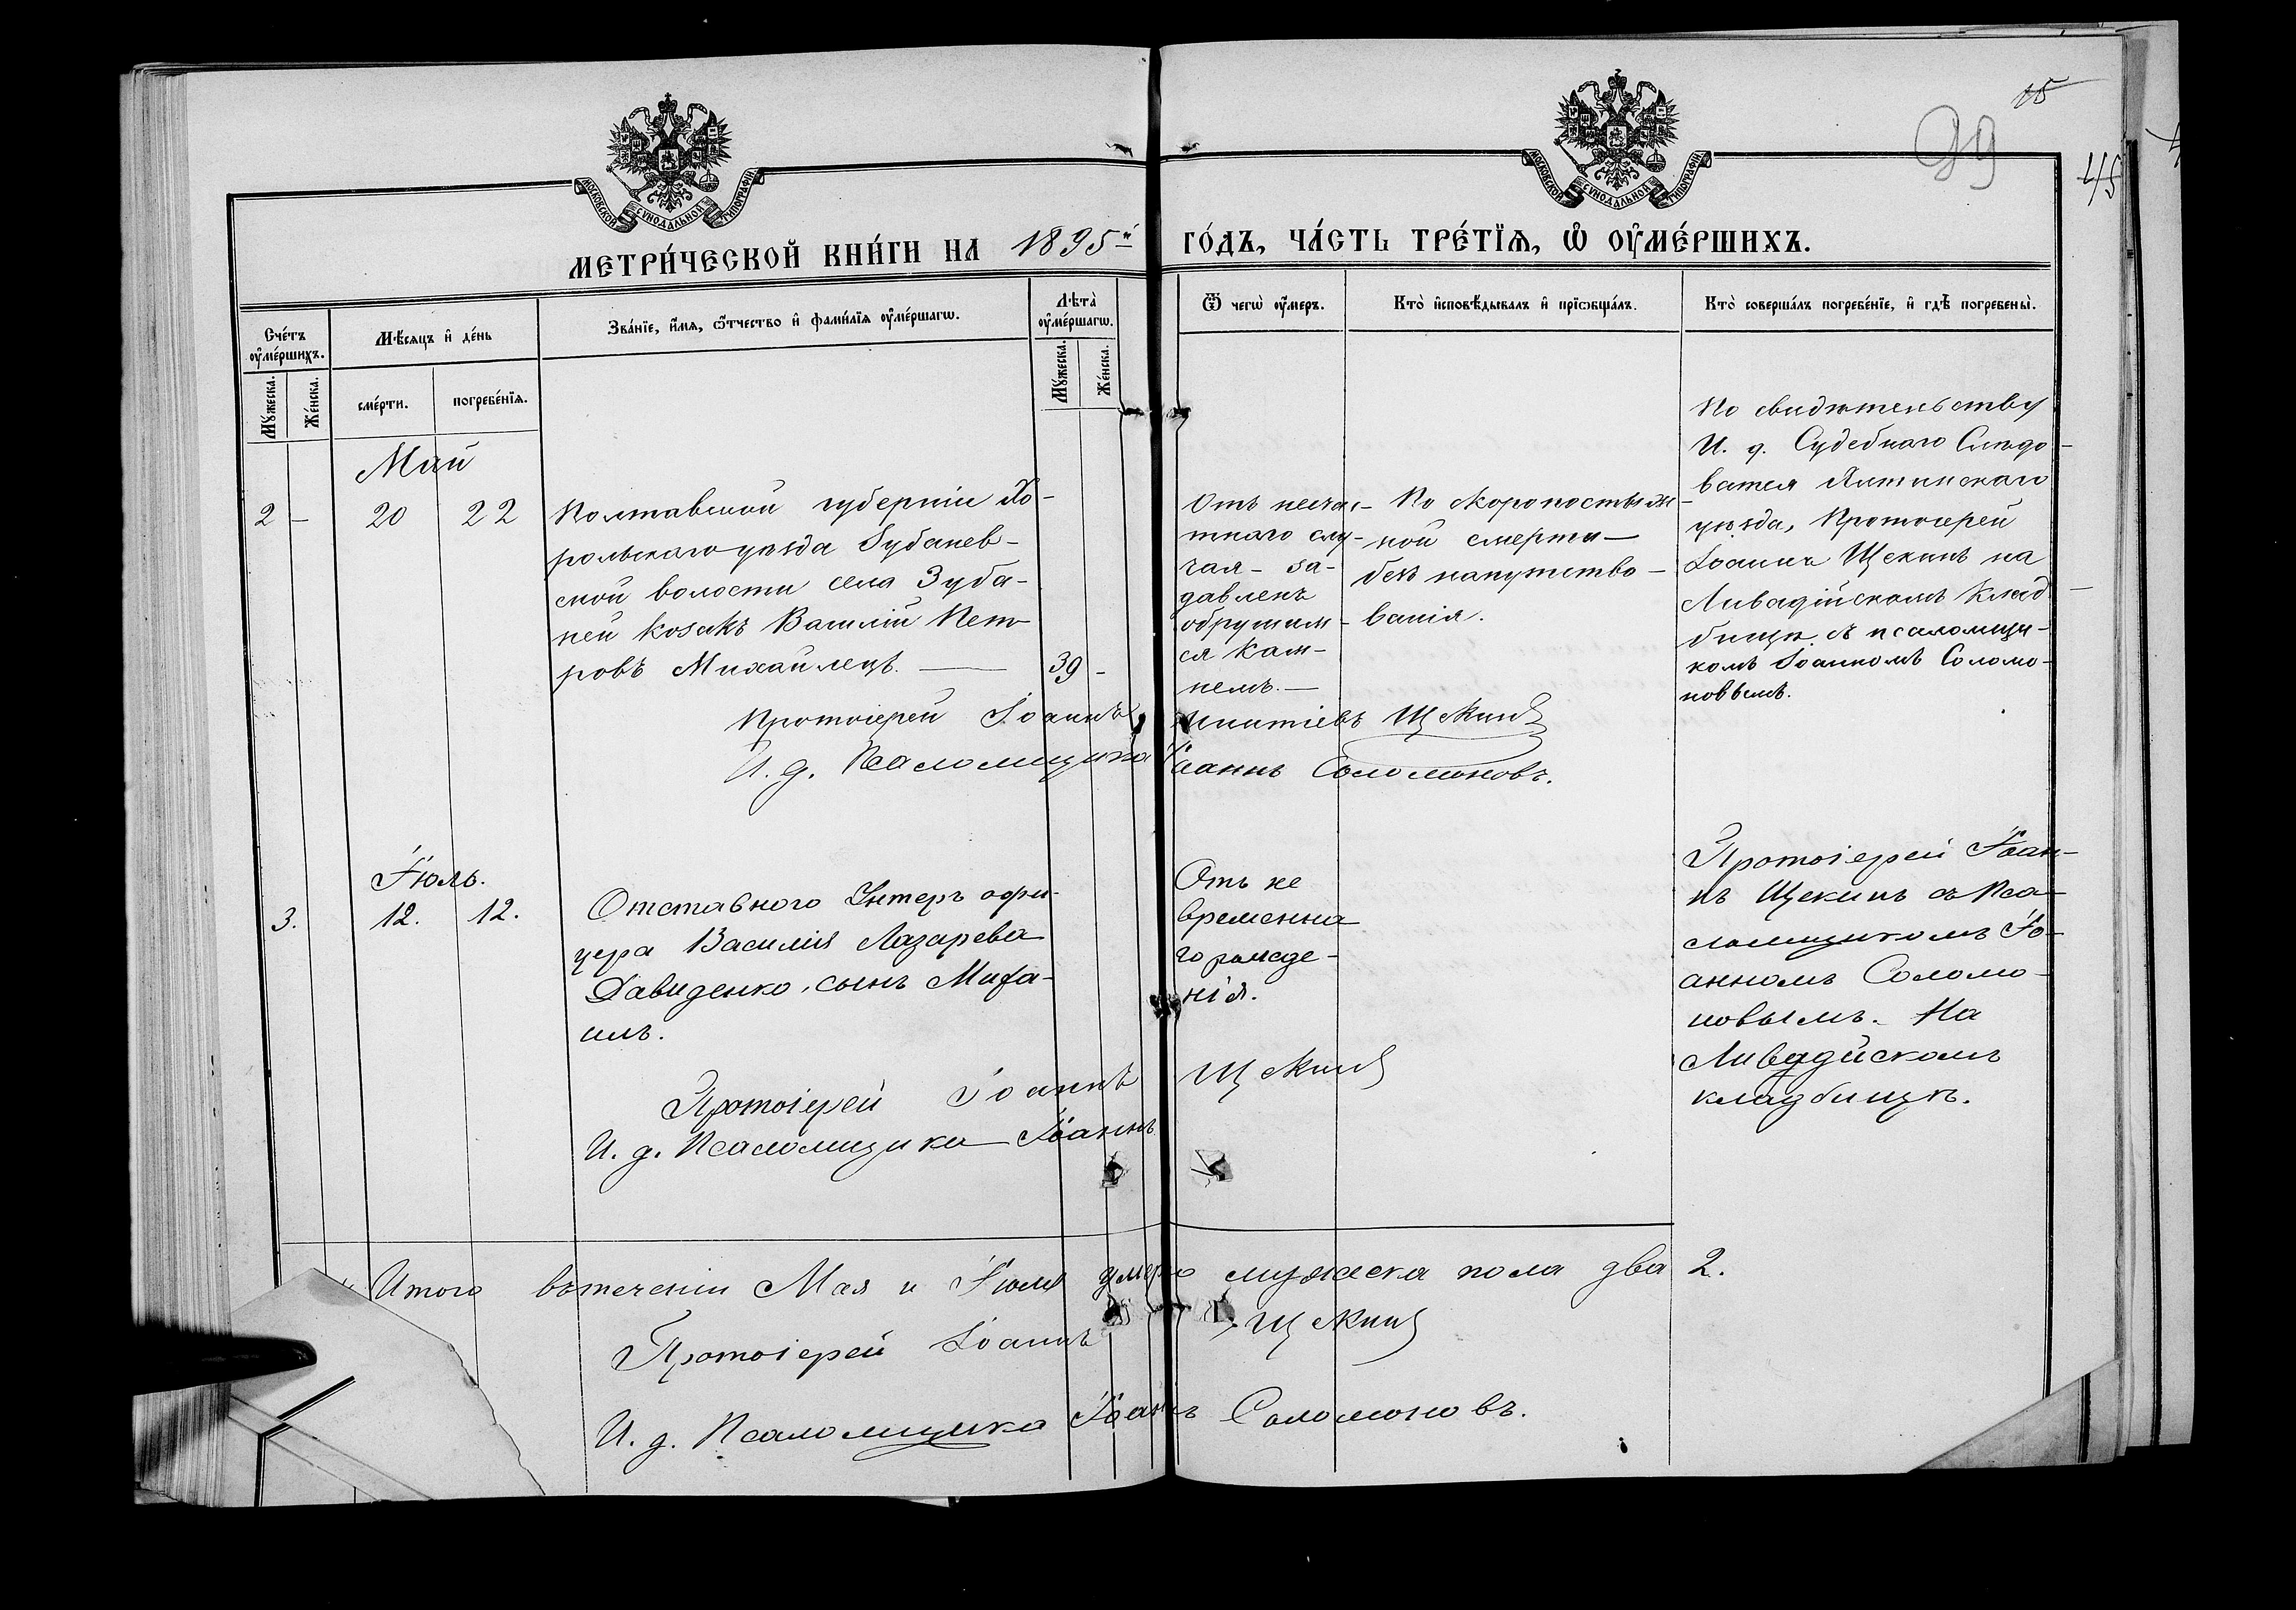 15
99
45
МОСКОВСКОЙ СѴНОДАЛЬНОЙ ТИПОГРАФІИ
МОСКОВСКОЙ СѴНОДАЛЬНОЙ ТИПОГРАФІИ
МЕТРИ́ЧЕСКОЙ КНИ́ГИ НА 1895й ГО́ДЪ, ЧА́СТЬ ТРЕ́ТІѦ, Ѡ҆ ОУ҆МЕ́РШИХЪ.
Сче́тъ оу҆ме́ршихъ.
Мꙋ́жеска.
Же́нска.
Мѣ́сѧцъ и҆ де́нь
сме́рти.
погребе́нїѧ.
Зва́нїе, и҆́мѧ, ѻ҆́тчество и҆ фами́лїѧ оу҆ме́ршагѡ.
Лѣта̀ оу҆ме́ршагѡ.
Мꙋ́жеска.
Же́нска.
Ѿ чегѡ̀ оу҆́меръ.
Кто̀ и҆сповѣ́дывалъ и҆ прїѡбща́лъ.
Кто̀ соверша́лъ погребе́нїе, и҆ гдѣ̀ погребены̀.
Май
2 – 20 22
Полтавской губерніи Хо-
рольскаго уѣзда Зубанев-
ской волости села Зуба-
ней козакъ Василій Пет-
ровъ Михайлецъ. — 39 –
Отъ несчас-
тнаго слу-
чая – за-
давленъ
обрушим-
ся кам-
немъ. —
По скоропостиж-
ной смерти —
безъ напутство-
ванія.
По свидѣтельству
И. д. Судебнаго Слѣдо-
вателя Ялтинскаго
уѣзда, Протоіерей
Іоаннъ Щекинъ на
Ливадійскомъ Клад-
бищѣ съ псаломщи-
комъ Іоанномъ Соломо-
новымъ.
Протоіерей Іоаннъ Ипатіевъ Щекинъ
И. д. Псаломщика Іоаннъ Соломоновъ.
Іюль.
3. 12. 12.
Отставного Унтеръ офи-
цера Василія Лазарева
Давиденко, сынъ Миха-
илъ.
Отъ не
временна
го рожде-
нія.
Протоіерей Іоан-
нъ Щекинъ съ Пса-
ломщикомъ Іо-
анномъ Соломо-
новымъ. На
Ливадійскомъ
кладбищѣ.
Протоіерей Іоаннъ Щекинъ
И. д. Псаломщика Іоаннъ
Итого въ теченіи Мая и Іюля умерло мужеска пола два 2.
Протоіерей Іоаннъ Щекинъ
И. д. Псаломщика Іоаннъ Соломоновъ.